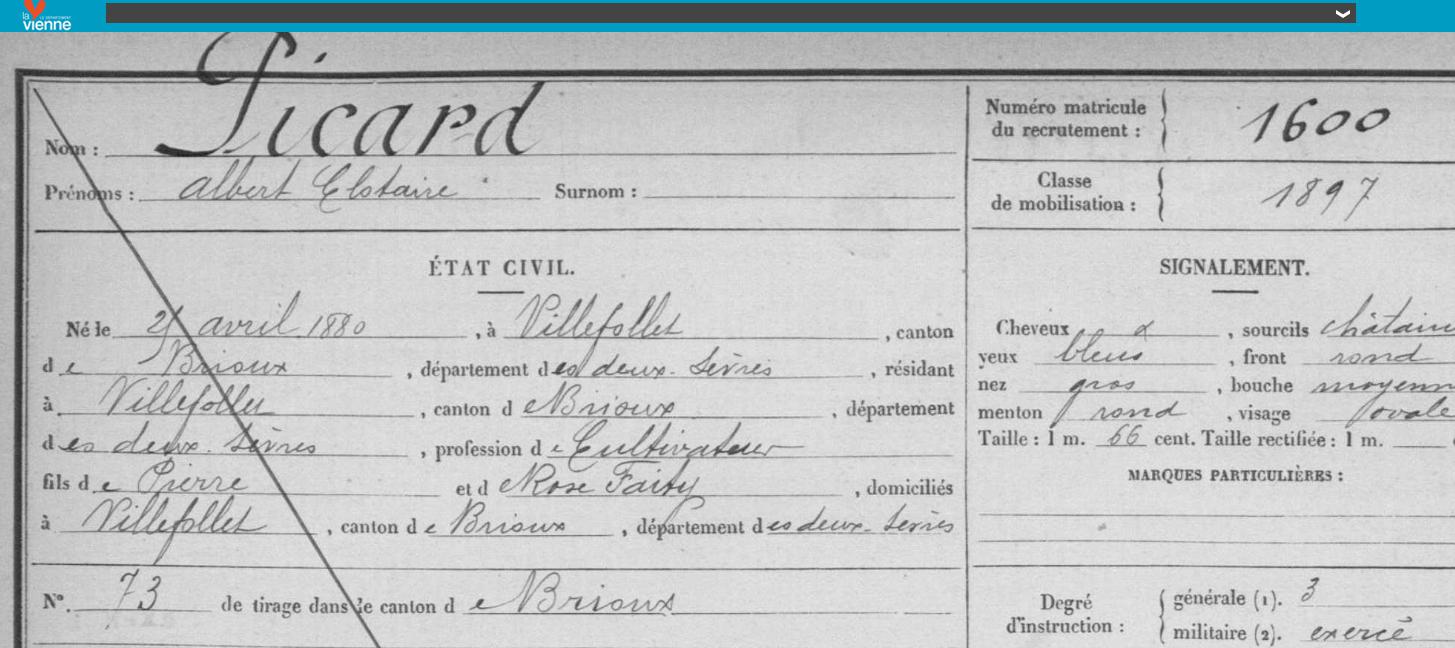 la
LE DÉPARTEMENT
vienne
Nom : Picard
Prénoms : Albert Elstaire Surnom :
Numéro matricule du recrutement : 1600
Classe de mobilisation : 1897
ÉTAT CIVIL.
Né le avril 1880, à Villefollet, canton
de Brioux, département des deux-Sèvres, résidant
à Villefollet, canton de Brioux, département
des deux-Sèvres, profession de Cultivateur
fils de Pierre et de Rose, domiciliés
à Villefollet, canton de Brioux, département des deux-Sèvres
N°. 73 de tirage dans le canton de Brioux
SIGNALEMENT.
Cheveux &, sourcils châtains
yeux bleus, front rond
nez gros, bouche moyenn
menton rond, visage ovale
Taille : 1 m. 66 cent. Taille rectifiée : 1 m.
MARQUES PARTICULIÈRES :
Degré d'instruction :
générale (1). 3
militaire (2). exercé